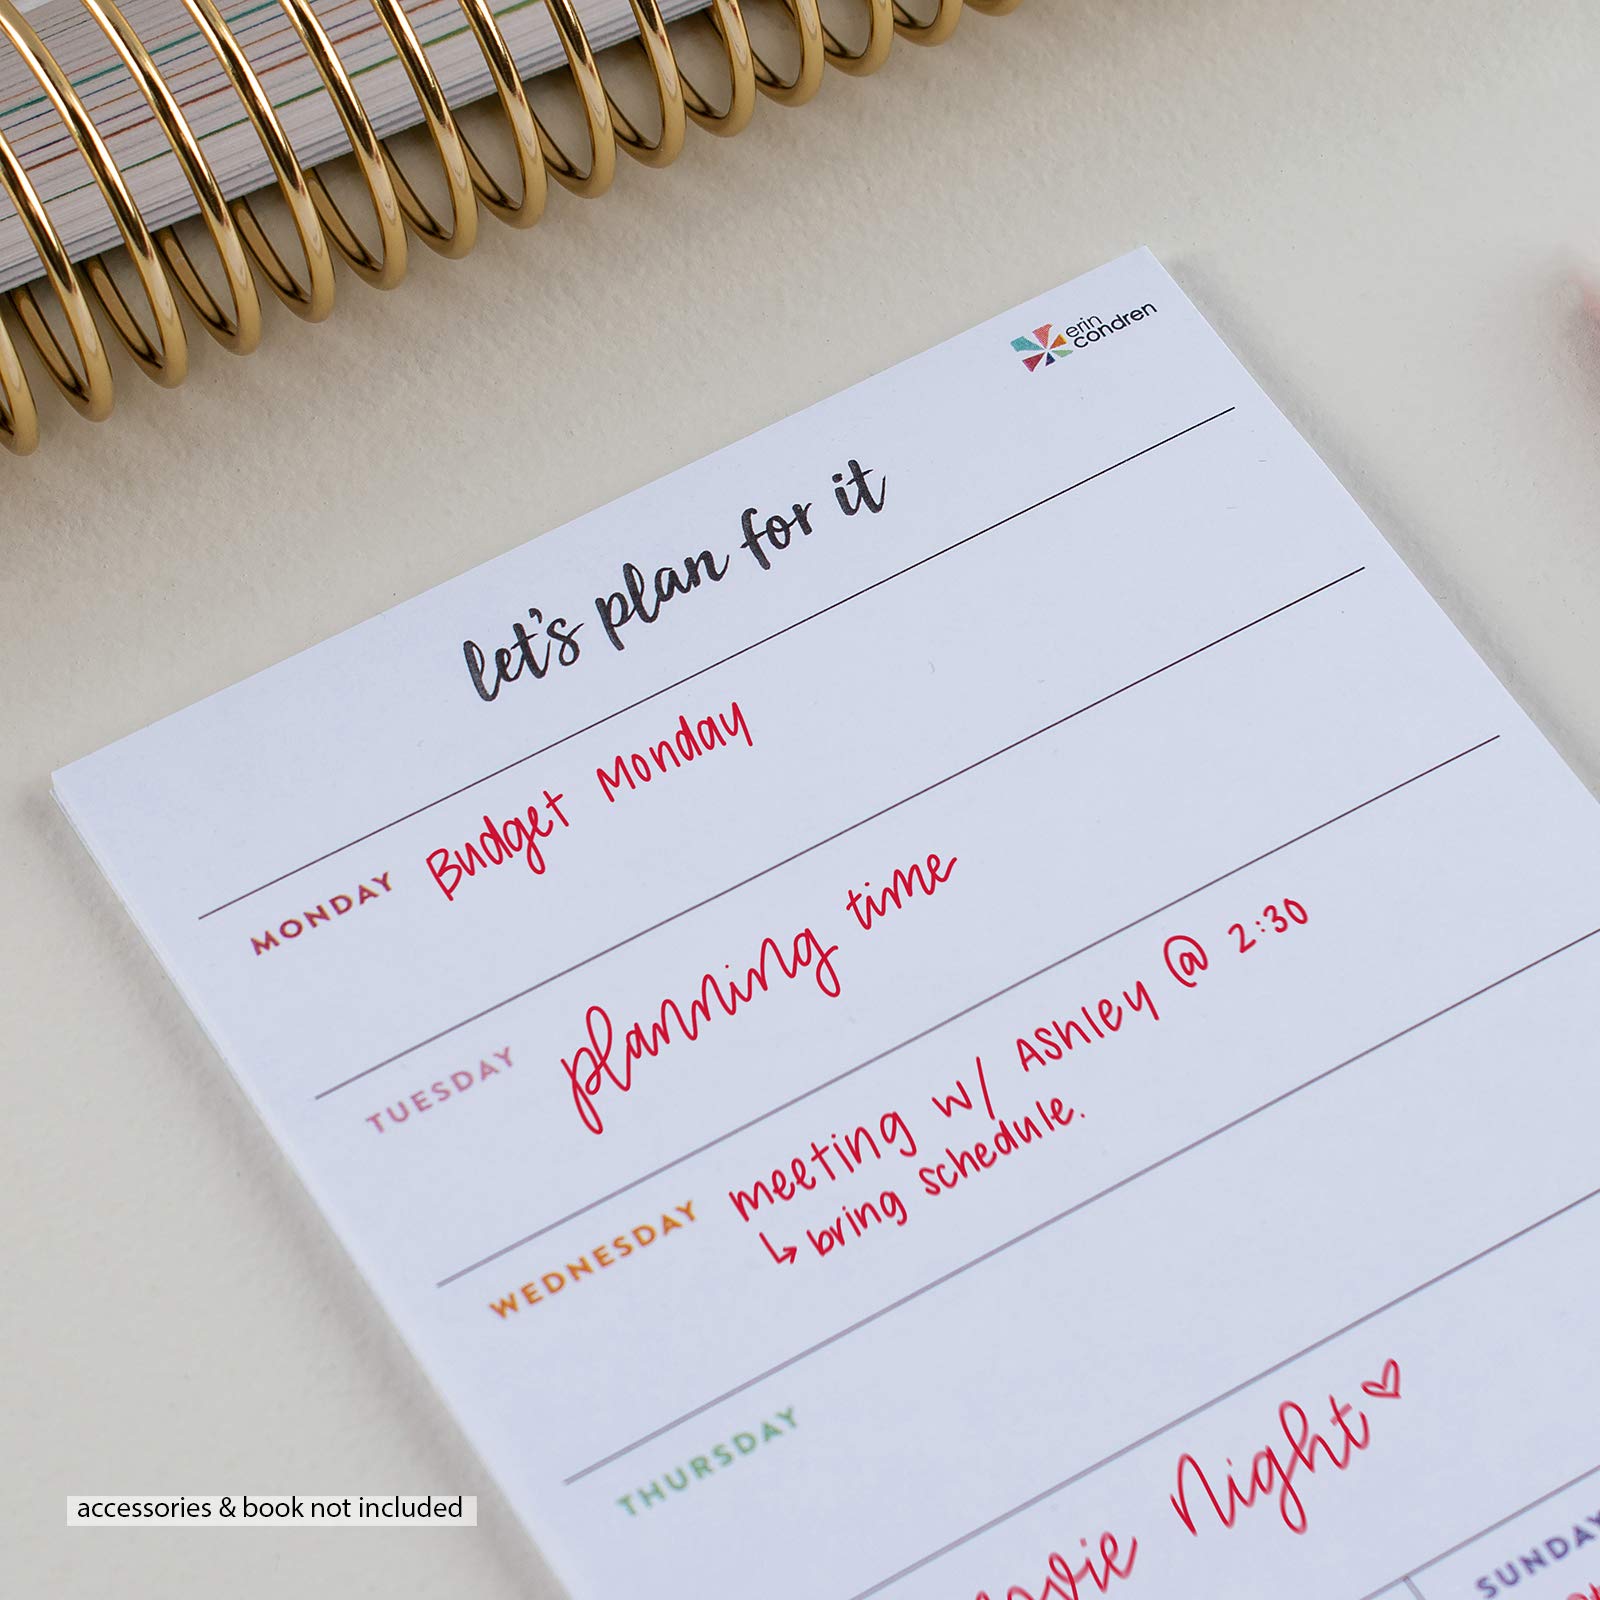 erin
condren
let's plan for it
MONDAY Budget Monday
TUESDAY planning time
WEDNESDAY meeting w/ Ashley @ 2:30
↳ bring schedule.
THURSDAY
Night ♡
SUNDAY
accessories & book not included